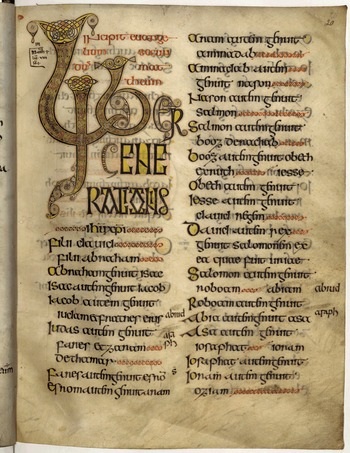 LIBER
GENE
RATIONIS
ihu xpi
Filii dauid
Filii abracham
Abracham genuit isac
Isac autem genuit iacob
Iacob autem genuit
iudam et fratres eius
Iudas autem genuit
fares et zaram
de thamar
Fares autem genuit esro
esrom autem genuit aram
abiud
asa
ph
20
Aram autem genuit
aminadab
Aminadab autem
genuit nason
Nason autem genuit
salmon
Salmon autem genuit
booz de rachab
Booz autem genuit obeth
ex ruth iesse
Obeth autem genuit
Iesse autem genuit
dauid regem
Dauid autem rex
genuit salomonem ex
ea quae fuit uriae
Salomon autem genuit
roboam abiam abiud
Roboam autem genuit
Abia autem genuit asa asaph
Asa autem genuit
iosaphat ioram
Iosaphat autem genuit
Ioram autem genuit
oziam